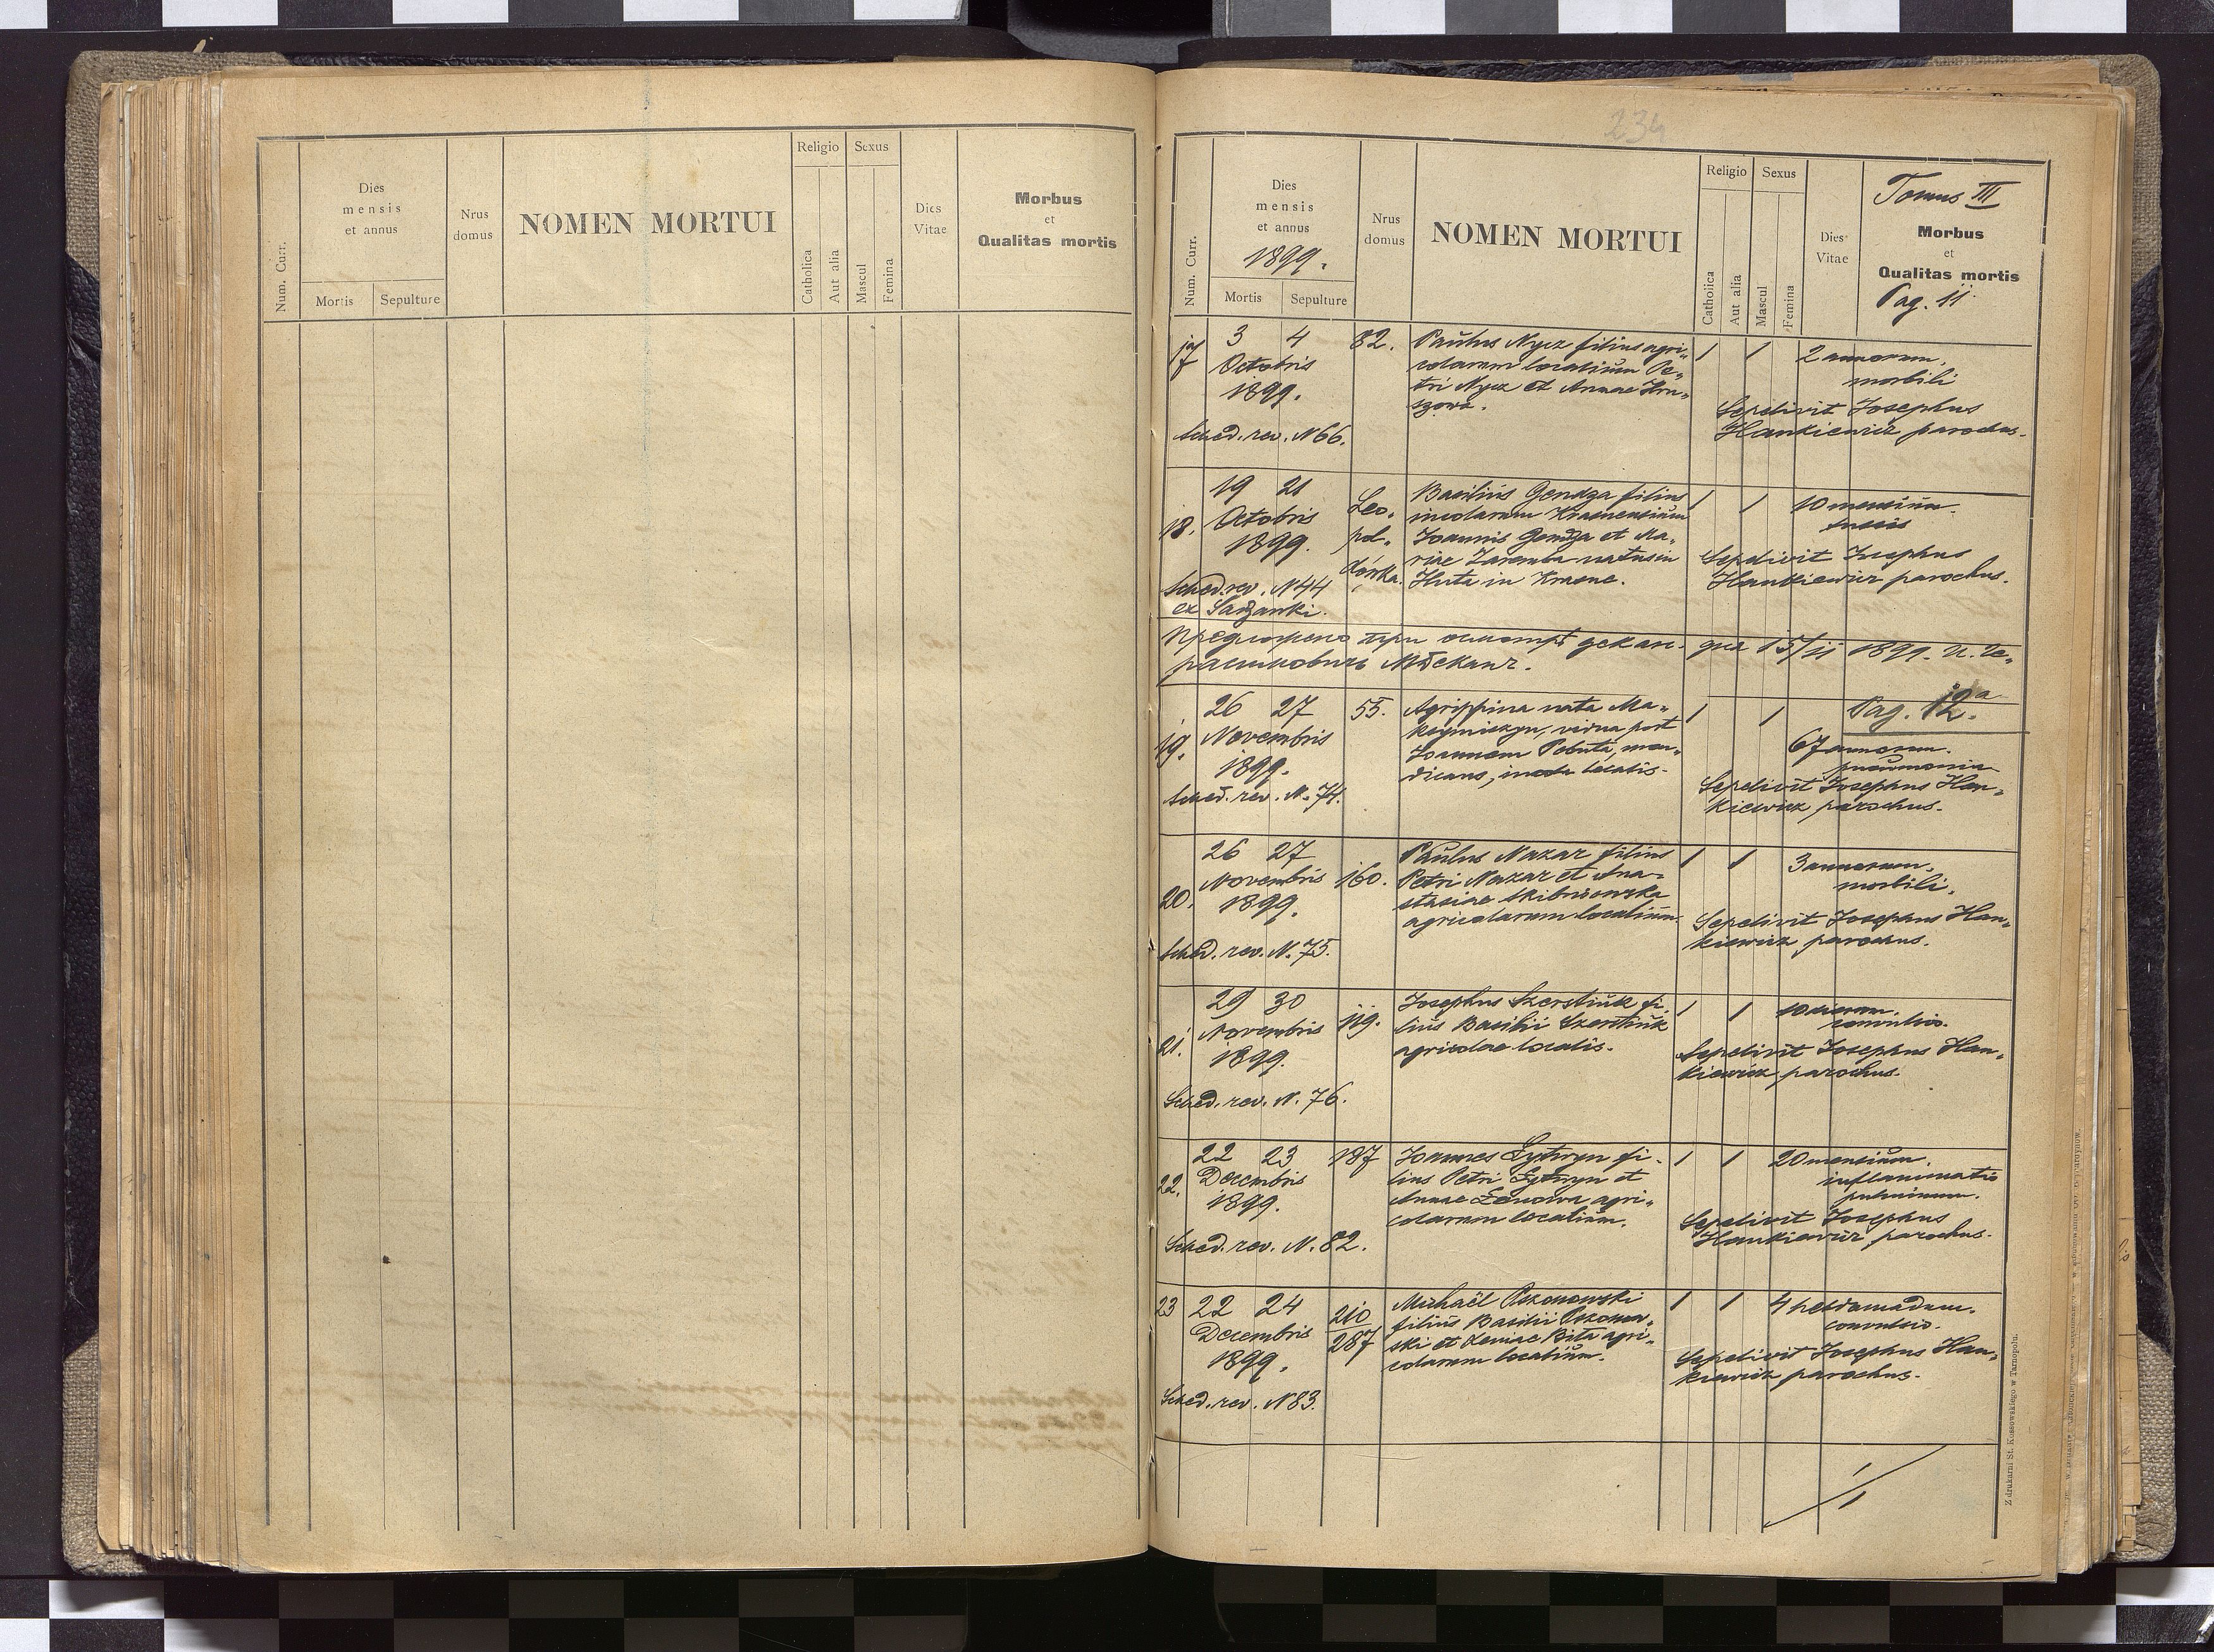 Num. Curr.
Dies
mensis
et annus
Mortis
Sepulture
Nrus
domus
NOMEN MORTUI
Religio
Catholica
Aut alia
Sexus
Mascul
Femina
Dies
Vitae
Morbus
et
Qualitas mortis
234
Num. Curr.
Dies
mensis
et annus
1899.
Mortis
Sepulture
Nrus
domus
NOMEN MORTUI
Religio
Catholica
Aut alia
Sexus
Mascul
Femina
Dies
Vitae
Tomus III
Morbus
et
Qualitas mortis
Pag. 11.
17
3 4
Octobris
1899.
Sched. rev. N 66.
82.
Paulus Nycz filius agri„
colarum localium Pe„
tri Nycz et Annae Hru„
szowa.
1 1
2 annorum.
morbili
Sepelivit Josephus
Hankiewicz parochus.
18.
19 21
Octobris
1899.
Sched. rev. N 44
ex Sadzanki.
Leo„
pol„
dórka.
Basilius Gendza filius
incolarum Krasnensium
Joannis Gendza et Ma„
riae Zaremba natus in
Huta in Krasne.
1 1
10 mensium.
tussis
Sepelivit Josephus
Hankiewicz parochus.
Предложено при осмотрѣ декан. дня 15/11 1899. И. Ге„
расимовичь Мѣскань.
19.
26 27
Novembris
1899.
Sched. rev. N. 74.
55.
Agrippina nata Ma„
vidua post
Joannem Pobuta, men„
dicans, incola localis.
1 1
Pag. 12.
67 annorum.
pneumonia
Sepelivit Josephus Han„
kiewicz parochus.
20.
26 27
Novembris
1899.
Sched. rev. N. 75.
160.
Paulus Nazar filius
Petri Nazar et Ana„
stasiae Skibniowska
agricolarum localium.
1 1
3 annorum.
morbili.
Sepelivit Josephus Han„
kiewicz parochus.
21.
29 30
Novembris
1899.
Sched. rev. N. 76.
119.
Josephus Szerstiuk fi„
lius Basilii Szerstiuk
agricolae localis.
1 1
10 dierum.
convulsio.
Sepelivit Josephus Han„
kiewicz parochus.
22.
22 23
Decembris
1899.
Sched. rev. N. 82.
187
Joannes Lytwyn fi„
lius Petri Lytwyn et
Annae Lenowa agri„
colarum localium.
1 1
20 mensium.
inflammatio
pulmonum.
Sepelivit Josephus
Hankiewicz parochus.
23
22 24
Decembris
1899.
Sched. rev. N 83.
210
287
Michaël Pszonowski
filius Basilii Pszonow„
ski et Xeniae Bita agri„
colarum localium.
1 1
4 hebdomadum.
convulsio.
Sepelivit Josephus Han„
kiewicz parochus.
Z drukarni St. Kossowskiego w Tarnopolu.